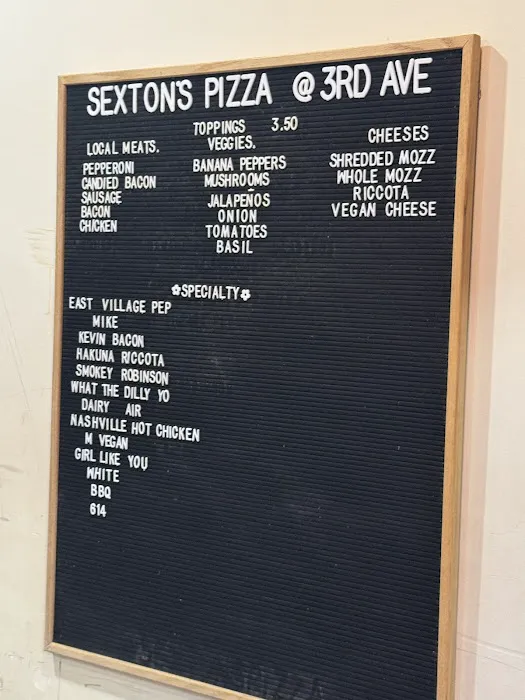 SEXTON'S PIZZA @ 3RD AVE
TOPPINGS 3.50
LOCAL MEATS.
PEPPERONI
CANDIED BACON
SAUSAGE
BACON
CHICKEN
VEGGIES.
BANANA PEPPERS
MUSHROOMS
JALAPEÑOS
ONION
TOMATOES
BASIL
CHEESES
SHREDDED MOZZ
WHOLE MOZZ
RICCOTA
VEGAN CHEESE
✿SPECIALTY✿
EAST VILLAGE PEP
MIKE
KEVIN BACON
HAKUNA RICCOTA
SMOKEY ROBINSON
WHAT THE DILLY YO
DAIRY AIR
NASHVILLE HOT CHICKEN
M VEGAN
GIRL LIKE YOU
WHITE
BBQ
614